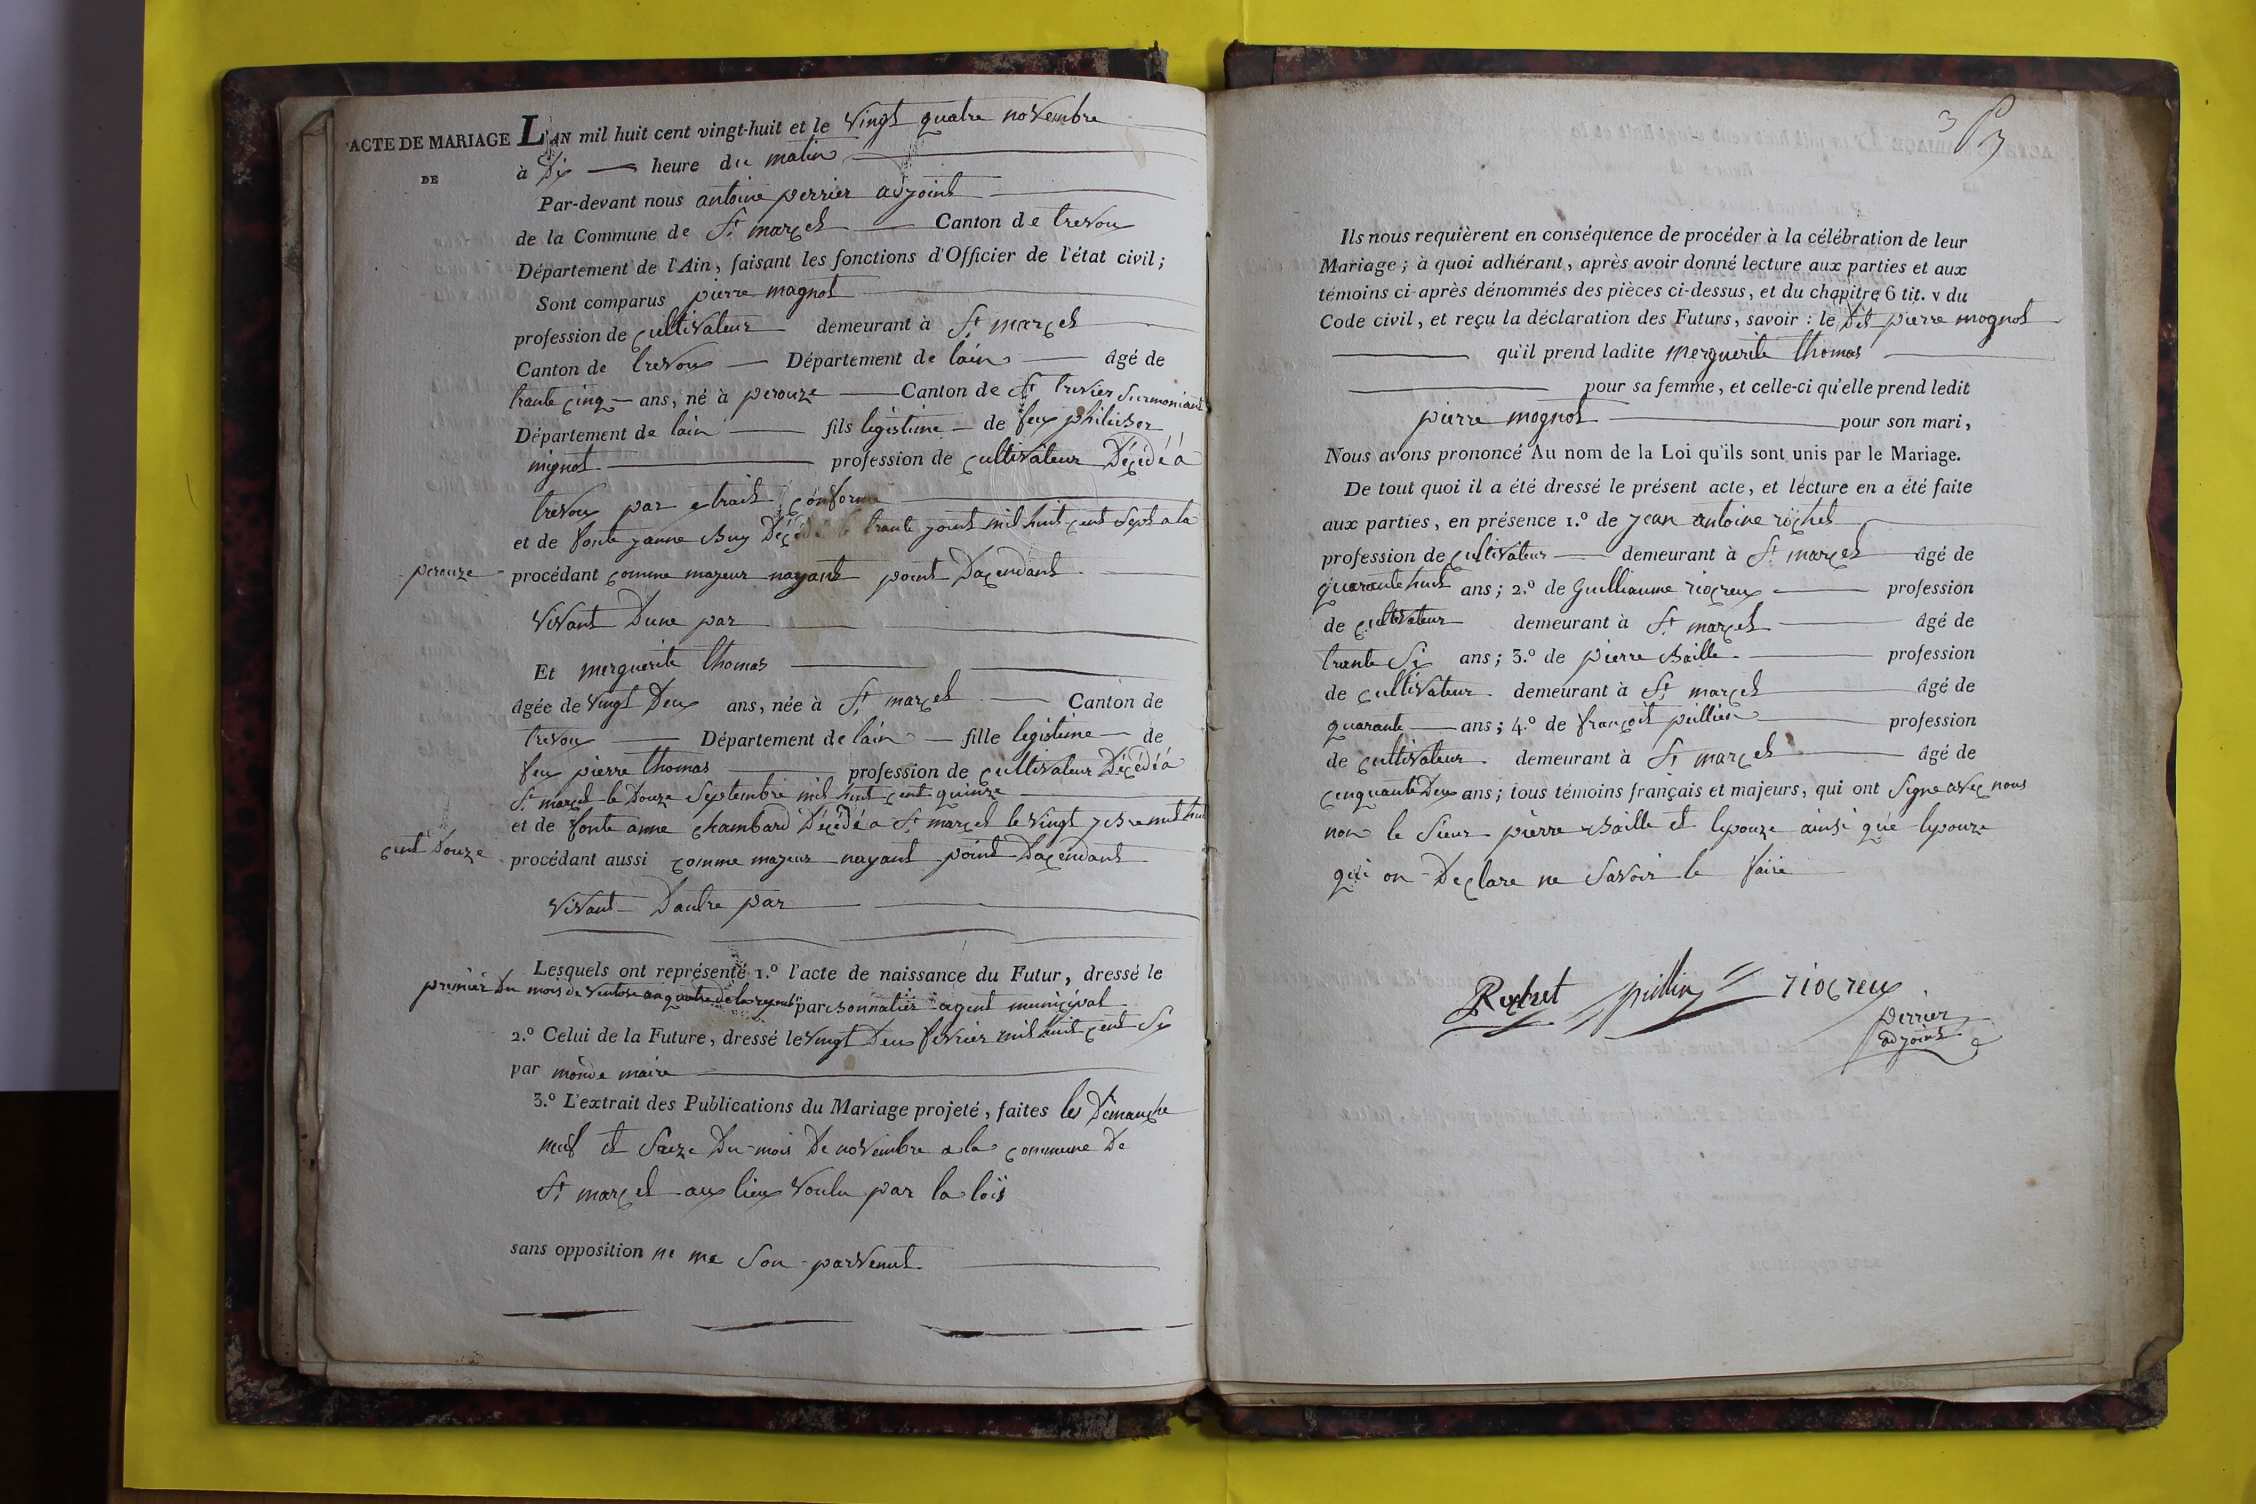 ACTE DE MARIAGE L'AN mil huit cent vingt-huit et le vingt quatre novembre
DE
à Dix heure du matin
Par-devant nous antoine perrier adjoint
de la Commune de St marcel Canton de trevou
Département de l'Ain, faisant les fonctions d'Officier de l'état civil;
Sont comparus pierre magnot
profession de cultivateur demeurant à St marcel
Canton de trevoux Département de lain âgé de
trante cinq ans, né à perouze Canton de St trivier surmoniant
Département de lain fils légistime de feu philiber
mignot profession de cultivateur Décédé a
trevoux par extrait conforme
et de fonte janne Buy Décédé le trante jout mil huit cent sept a la
perouze procédant comme majeur nayant point Dacendant
vivant Dune par
Et merguerite thomas
âgée de vingt Deux ans, née à St marcel Canton de
trevoux Département de lain fille legistime de
feu pierre thomas profession de cultivateur Décédé a
St marcel le Douze Septembre mil huit cent quinze
et de fonte anne chambard Décédé a St marcel le vingt 7bre mil huit
cent Douze procédant aussi comme majeur nayant point Dacendant
vivant Dautre par
Lesquels ont représenté 1.º l'acte de naissance du Futur, dressé le
premier du mois de ventose an quatre de la repub par bonnatier agent municipal
2.º Celui de la Future, dressé le vingt Deux fevrier mil huit cent Six
par monde maire
3.º L'extrait des Publications du Mariage projeté, faites les Dimanche
neuf et Seize Du mois De novembre a la commune De
St marcel aux lieux voulu par la lois
sans opposition ne me Son parvenut
3
Ils nous requièrent en conséquence de procéder à la célébration de leur
Mariage; à quoi adhérant, après avoir donné lecture aux parties et aux
témoins ci-après dénommés des pièces ci-dessus, et du chapitre 6 tit. v du
Code civil, et reçu la déclaration des Futurs, savoir: le Dit pierre mognot
qu'il prend ladite merguerite thomas
pour sa femme, et celle-ci qu'elle prend ledit
pierre mognot pour son mari,
Nous avons prononcé Au nom de la Loi qu'ils sont unis par le Mariage.
De tout quoi il a été dressé le présent acte, et lecture en a été faite
aux parties, en présence 1.º de jean antoine rochet
profession de cultivateur demeurant à St marcel âgé de
quarante huit ans; 2.º de Guilliaume riocreux profession
de cultivateur demeurant à St marcel âgé de
trante Six ans; 3.º de pierre Baille profession
de cultivateur demeurant à St marcel âgé de
quarante ans; 4.º de françoit pillien profession
de cultivateur demeurant à St marcel âgé de
cinquante Deux ans; tous témoins français et majeurs, qui ont Signe avec nous
non le Sieur pierre Baille et lepouze ainsi que lepouze
qui on Declare ne Savoir le faire
Rochet pillien riocreux
perrier
adjoint